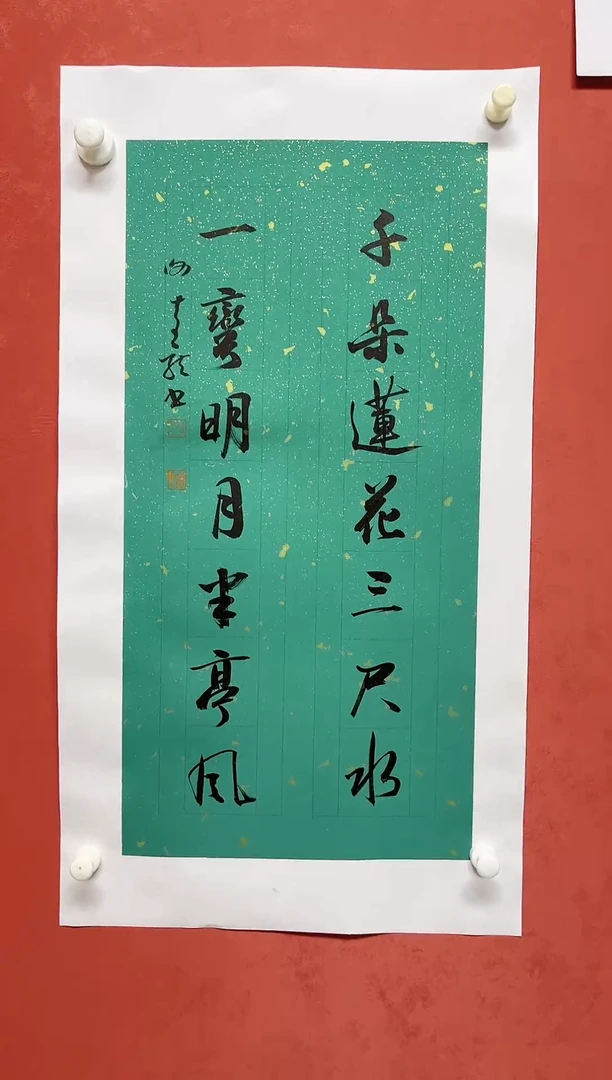 千朵蓮花三尺水
一彎明月半亭風